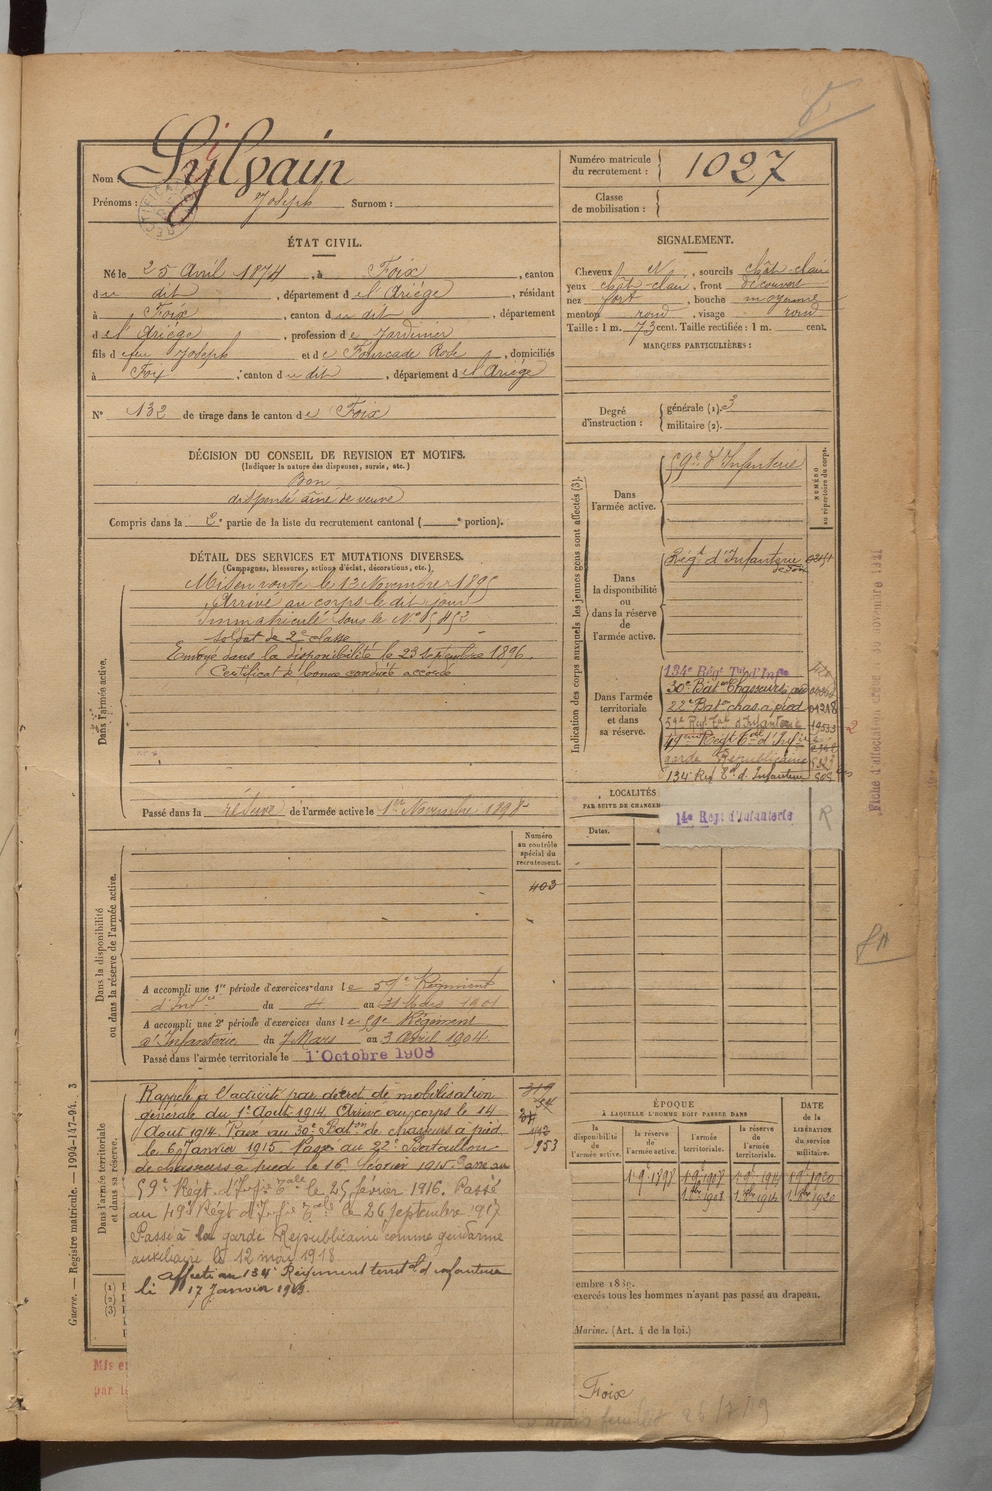 Nom : Sylvain
Prénoms : Joseph Surnom :
Numéro matricule du recrutement : 1027
Classe de mobilisation :
ÉTAT CIVIL.
Né le 25 Avril 1874, à Foix, canton
du dit, département de l'Ariége, résidant
à Foix, canton du dit, département
de l'Ariége, profession de Jardinier
fils de feu Joseph et de Fourcade Rose, domiciliés
à Foix, canton du dit, département de l'Ariége
N° 132 de tirage dans le canton de Foix
DÉCISION DU CONSEIL DE REVISION ET MOTIFS.
(Indiquer la nature des dispenses, sursis, etc.)
Bon
dispensé aîné de veuve
Compris dans la 2e partie de la liste du recrutement cantonal ( e portion).
DÉTAIL DES SERVICES ET MUTATIONS DIVERSES.
(Campagnes, blessures, actions d'éclat, décorations, etc.)
Dans l'armée active.
Mis en route le 13 Novembre 1895
Arrivé au corps le dit jour
Immatriculé sous le N° 5452
soldat de 2e classe
Envoyé dans la disponibilité le 23 septembre 1896.
Certificat de bonne conduite accordé
Passé dans la réserve de l'armée active le 1er Novembre 1898
Numéro au contrôle spécial du recrutement.
403
Dans la disponibilité ou dans la réserve de l'armée active.
A accompli une 1re période d'exercices dans le 59e Régiment
d'Infie du 4 au 31 1901
A accompli une 2e période d'exercices dans le 59e Régiment
d'Infanterie du 7 Mars au 3 Avril 1904
Passé dans l'armée territoriale le 1 Octobre 1908
Dans l'armée territoriale et dans sa réserve.
Rappelé à l'activité par décret de mobilisation
générale du 1er Août 1914. Arrivé au corps le 14
Août 1914. Passé au 30e Baton de chasseurs à pied
le 6 Janvier 1915. Passé au 22e Bataillon
de chasseurs à pied le 16 février 1915. Passé au
59e Régt d'Infie Tale le 25 février 1916. Passé
au 49e Régt d'Infie Tale le 26 septembre 1917
Passé à la garde Républicaine comme gendarme
auxiliaire le 12 mai 1918
affecté au 134e Régiment territal d'infanterie
le 17 Janvier 1919.
319
953
SIGNALEMENT.
Cheveux N, sourcils chât-clair
yeux chât-clair, front découvert
nez fort, bouche moyenne
menton rond, visage rond
Taille : 1 m. 73 cent. Taille rectifiée : 1 m. cent.
MARQUES PARTICULIÈRES :
Degré d'instruction : générale (1). 3
militaire (2).
Indication des corps auxquels les jeunes gens sont affectés (3).
NUMÉRO au répertoire du corps.
Dans l'armée active.
59e d'Infanterie
Dans la disponibilité ou dans la réserve de l'armée active.
Régt d'Infanterie
de Foix
Dans l'armée territoriale et dans sa réserve.
134e Régt Tal d'Infie
30e Baton Chasseurs à pied
22e Baton chas. à pied 01218
59e Regt Tal d'Infanterie 19533
49eme Regt Tal d'Infie
garde Républicaine
134e Reg Tal d'Infanterie
LOCALITÉS
PAR SUITE DE CHANGEM
Dates.
14e Regt d'Infanterie
R
ÉPOQUE
À LAQUELLE L'HOMME DOIT PASSER DANS
la disponibilité de l'armée active.
la réserve de l'armée active.
l'armée territoriale.
la réserve de l'armée territoriale.
DATE de la LIBÉRATION du service militaire.
1.9.1898
1 8bre 1908
embre 1889.
exercés tous les hommes n'ayant pas passé au drapeau.
Marine. (Art. 4 de la loi.)
(1)
(2)
(3)
Guerre. — Registre matricule. — 1994-147-94. 3
Mis e
par l
Foix
26/7/19
Fiche d'affectation créée